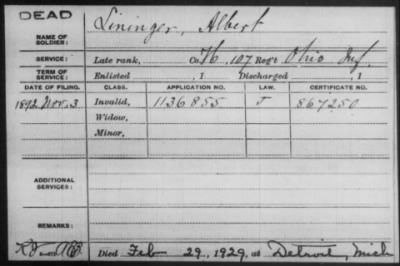 DEAD
NAME OF SOLDIER: Lininger, Albert
SERVICE: Late rank, Co. H, 107 Reg't Ohio Inf.
TERM OF SERVICE: Enlisted , 1 Discharged , 1
DATE OF FILING. CLASS. APPLICATION NO. LAW. CERTIFICATE NO.
1892 Nov. 3 Invalid, 1136855 J 867250
Widow,
Minor,
ADDITIONAL SERVICES:
REMARKS:
Died Feb 29, 1929, at Detroit, Mich